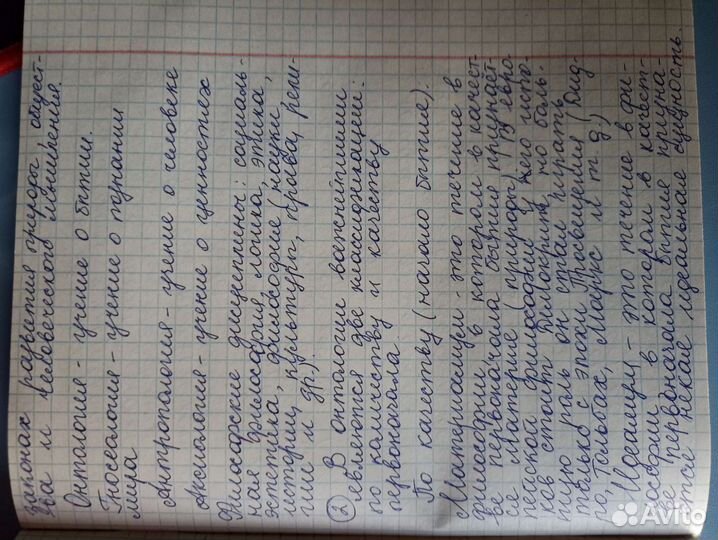 законах развития природы общест-
ва и человеческого мышления.
Онтология - учение о бытии.
Гносеология - учение о познании
мира
Антропология - учение о человеке
Аксиология - учение о ценностях
Философские дисциплины: социаль-
ная философия, логика, этика,
эстетика, философия (науки,
истории, культуры, права, рели-
гии и др.).
② В онтологии важнейшими
являются две классификации:
по количеству и качеству
первоначала.
По качеству (начало бытие).
Материализм - это течение в
философии, в котором в качест-
ве первоначала бытия признаёт-
ся материя (природа). В евро-
пейской философии у него исто-
ков стоит Демокрит, но боль-
шую роль он стал играть
только с эпохи Просвещения (Дид-
ро, Гольбах, Маркс и т д.)
Идеализм - это течение в фи-
лософии в котором в качест-
ве первоначала бытия призна-
ётся некая идеальная сущность.
Avito